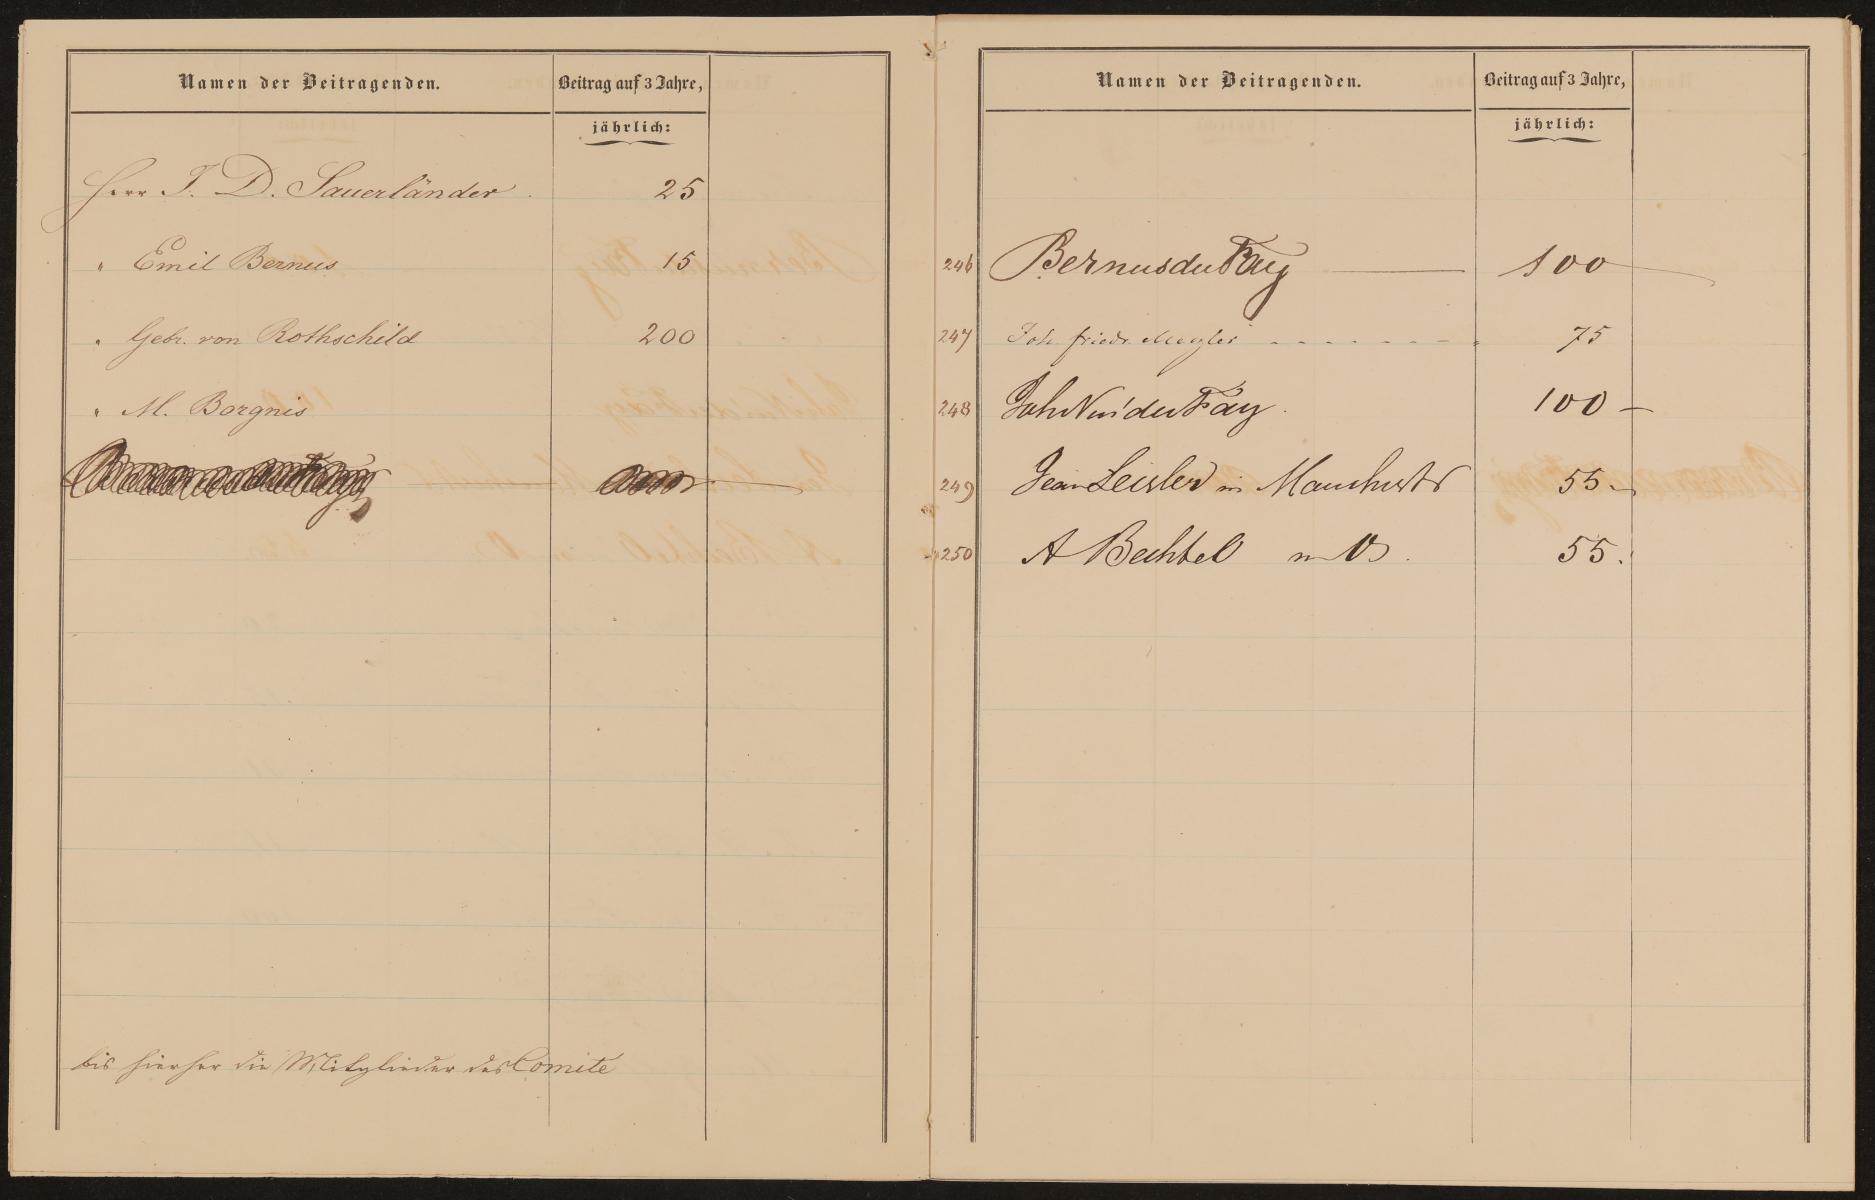 Namen der Beitragenden. Beitrag auf 3 Jahre,
jährlich:
Herr J. D. Sauerländer. 25
" Emil Bernus 15
" Gebr. von Rothschild 200
" M. Borgnis
bis hierher die Mitglieder des Comité
Namen der Beitragenden. Beitrag auf 3 Jahre,
jährlich:
246 Bernus du Fay 100
247 Joh. Friedr. 75
248 Joh Noé du Fay. 100 —
249 Jean Leisler in Manchester 55 —
250 A Bechtel 55.